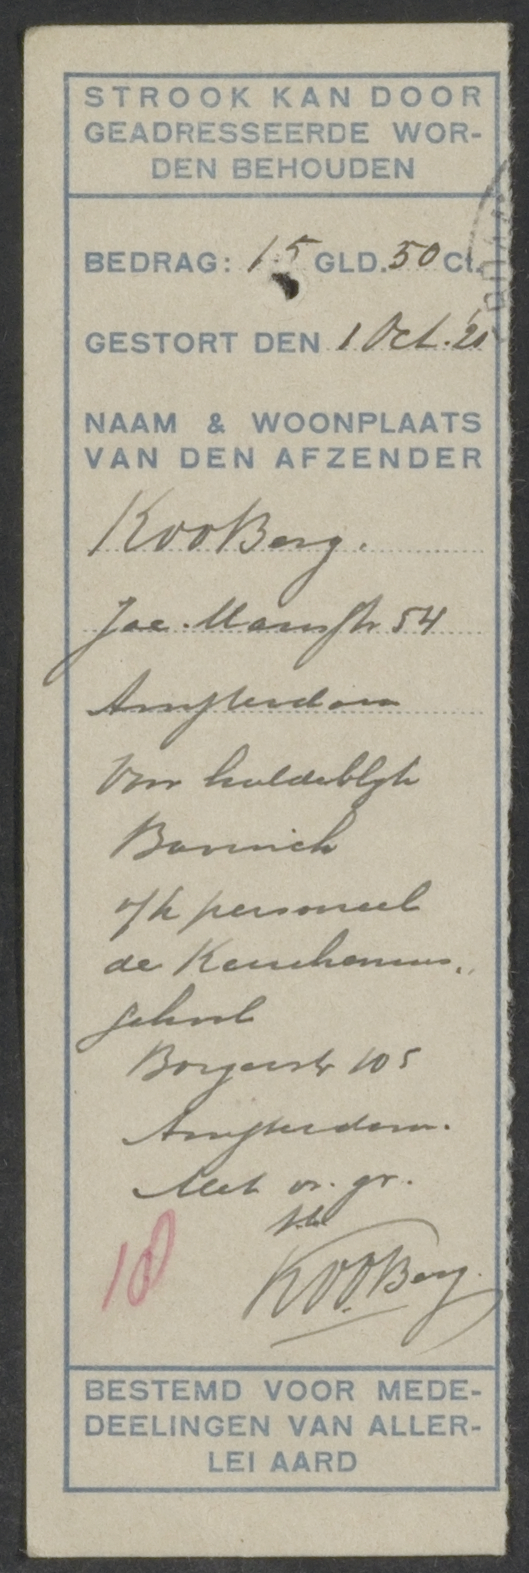 STROOK KAN DOOR
GEADRESSEERDE WOR-
DEN BEHOUDEN
BEDRAG: 15 GLD. 50 Ct.
GESTORT DEN 1 Oct. '21
NAAM & WOONPLAATS
VAN DEN AFZENDER
Koo Berg.
Jac. Marisstr 54
Amsterdam
Voor huldeblyk
Bavinck
v/h personeel
de Keucheniusschool
Borgerstr 105
Amsterdam.
Met vr. gr.
Koo Berg.
18
BESTEMD VOOR MEDE-
DEELINGEN VAN ALLER-
LEI AARD